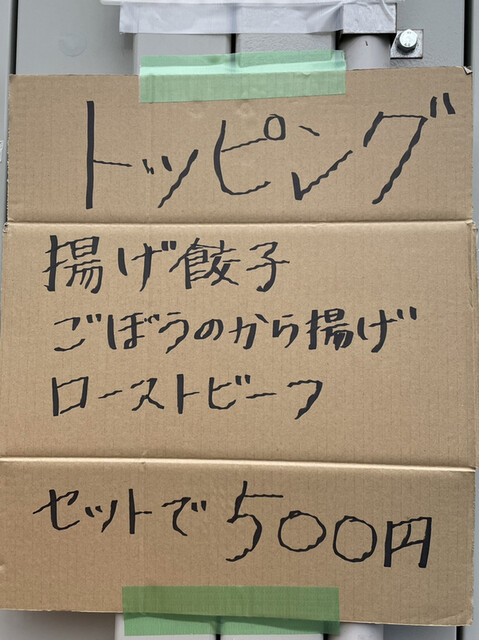 トッピング
揚げ餃子
ごぼうのから揚げ
ローストビーフ
セットで500円